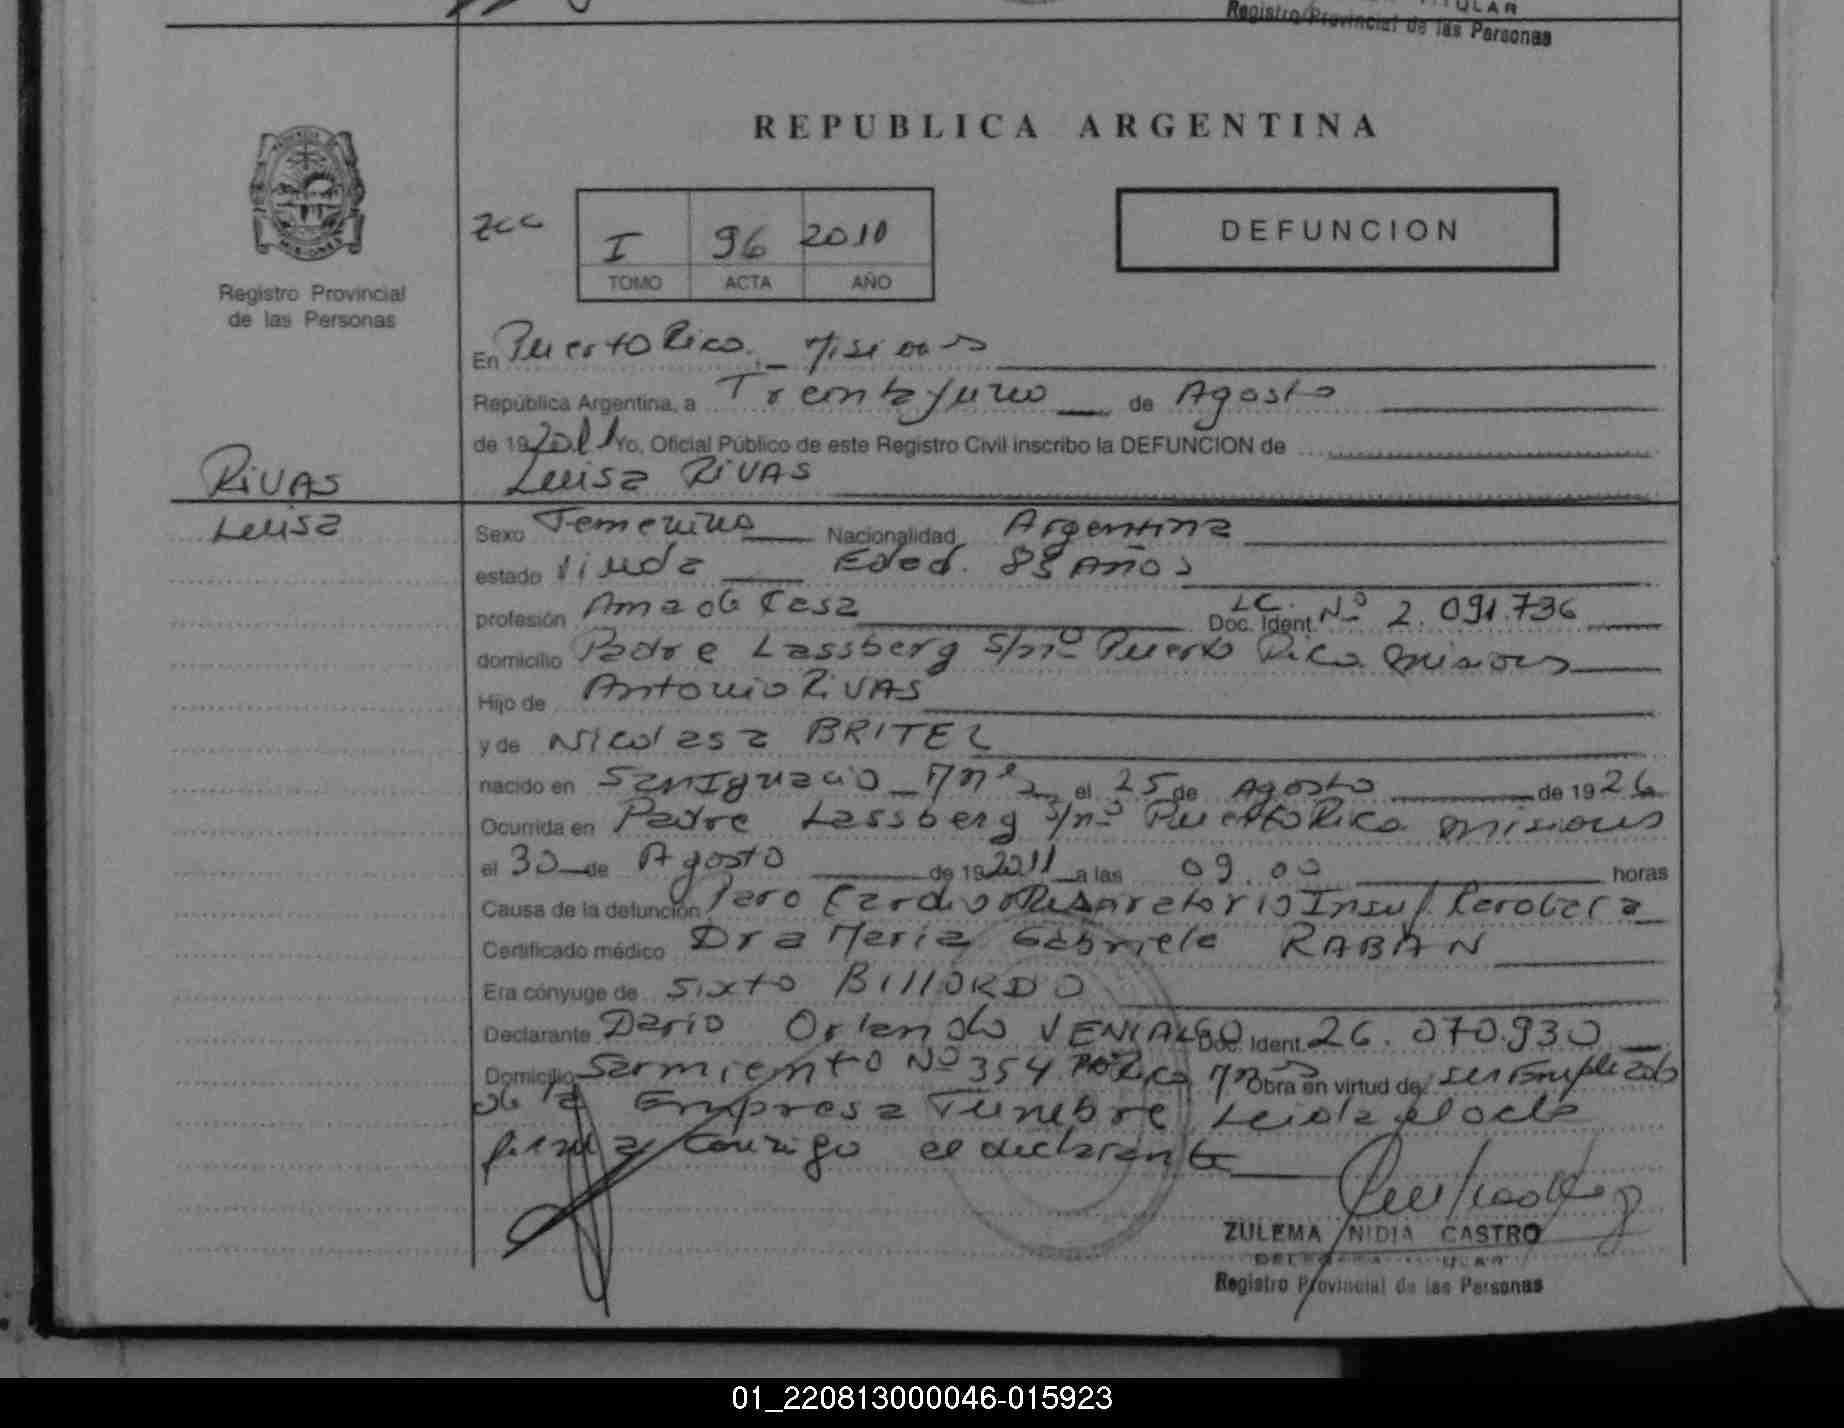 TITULAR
Registro Provincial de las Personas
REPUBLICA ARGENTINA
DEFUNCION
I 96 2010
TOMO ACTA AÑO
Registro Provincial
de las Personas
En Puerto Rico. _ Misiones
República Argentina, a Treinta y uno de Agosto
de 19 2011 Yo, Oficial Público de este Registro Civil inscribo la DEFUNCION de
RIVAS
Luisa RIVAS
Luisa
Sexo Femenino Nacionalidad Argentina
estado Viuda Edad. 85 Años
profesión Ama de Casa Doc. Ident. LC. Nº 2.091.736
domicilio Padre Lassberg S/nº Puerto Rico Misiones
Hijo de Antonio RIVAS
y de Nicolasa BRITEZ
nacido en San Ignacio _ Mnes el 25 de Agosto de 19 26
Ocurrida en Padre Lassberg S/nº Puerto Rico Misiones
el 30 de Agosto de 19 2011 a las 09.00 horas
Causa de la defunción Paro Cardio Respiratorio Insuf.
Certificado médico Dra Maria Gabriela RABAN
Era cónyuge de Sixto BILLORDO
Declarante Dario Orlando VENIALGO Doc. Ident. 26.070.930
Domicilio Sarmiento Nº 354 Pto Rico Mnes Obra en virtud de ser Empleado
de la Empresa Funebre Leida el acta
firma conmigo el declarante
ZULEMA NIDIA CASTRO
DELEGADA TITULAR
Registro Provincial de las Personas
01_220813000046-015923